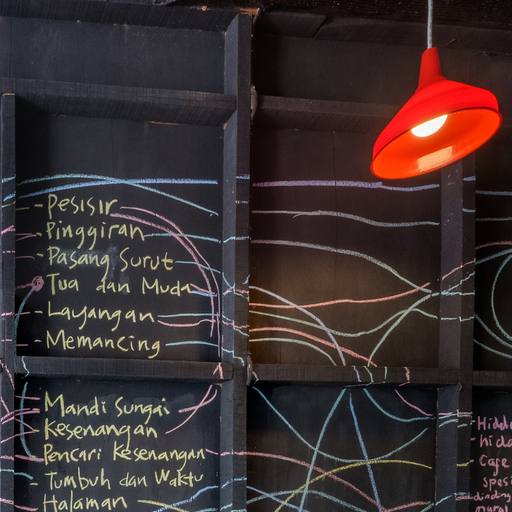 - Pesisir
- Pinggiran
- Pasang Surut
- Tua dan Muda
- Layangan
- Memancing
- Mandi Sungai
- Kesenangan
- Pencari Kesenangan
- Tumbuh dan Waktu
- Halaman
- Cafe